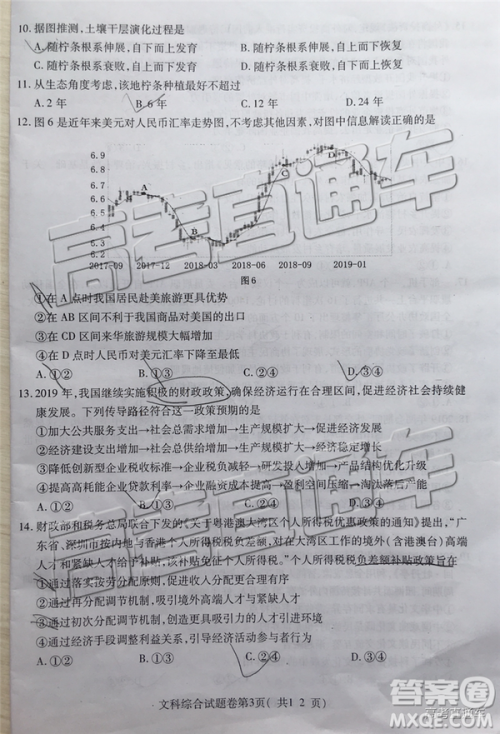 10. 据图推测,土壤干层演化过程是
A. 随柠条根系伸展,自下而上发育 B. 随柠条根系伸展,自上而下恢复
C. 随柠条根系衰败,自上而下发育 D. 随柠条根系衰败,自下而上恢复
11. 从生态角度考虑,该地柠条种植最好不超过
A. 2 年 B. 6 年 C. 12 年 D. 24 年
12. 图 6 是近年来美元对人民币汇率走势图,不考虑其他因素,对图中信息解读正确的是
6.9
6.8
6.6
6.5
6.3
6.2
A
B
C
D
2017-09 2017-12 2018-03 2018-06 2018-09 2019-01
图 6
①在 A 点时我国居民赴美旅游更具优势
②在 AB 区间不利于我国商品对美国的出口
③在 CD 区间来华旅游规模大幅增加
④在 D 点时人民币对美元汇率下降至最低
A. ①② B. ①③ C. ②④ D. ③④
13. 2019 年,我国继续实施积极的财政政策,确保经济运行在合理区间,促进经济社会持续健
康发展。下列传导路径符合这一政策预期的是
①加大公共服务支出→社会总需求增加→生产规模扩大→促进充分就业
②经济建设支出增加→社会总供给增加→生产规模扩大→促进
③降低创新型企业税率→企业税负减轻→研发投入增加→
④提高高耗能企业贷款利率→融资成本提高→盈利空间压缩→淘汰落后产能
A. ①② B. ①③ C. ②④ D. ③④
14. 财政部和税务总局联合下发的《关于粤港澳大湾区个人所得税优惠政策的通知》提出,“广
东省、深圳市按内地与香港个人所得税税负差额,对在大湾区工作的境外(含港澳台)高端
人才和紧缺人才给予补贴,该补贴免征个人所得税。”个人所得税税负差额补贴政策旨在
①通过落实按劳分配原则,促进收入分配更加合理
②通过再分配调节机制,吸引境外高端人才与紧缺人才
③通过初次分配调节机制,吸引境外
④通过经济手段调整利益关系,引导经济活动参与者的行为
A. ①② B. ①③ C. ②④ D. ③④
文科综合试题卷第3页( 共1 2 页)
高考直通车
答案圈
MXQE.COM